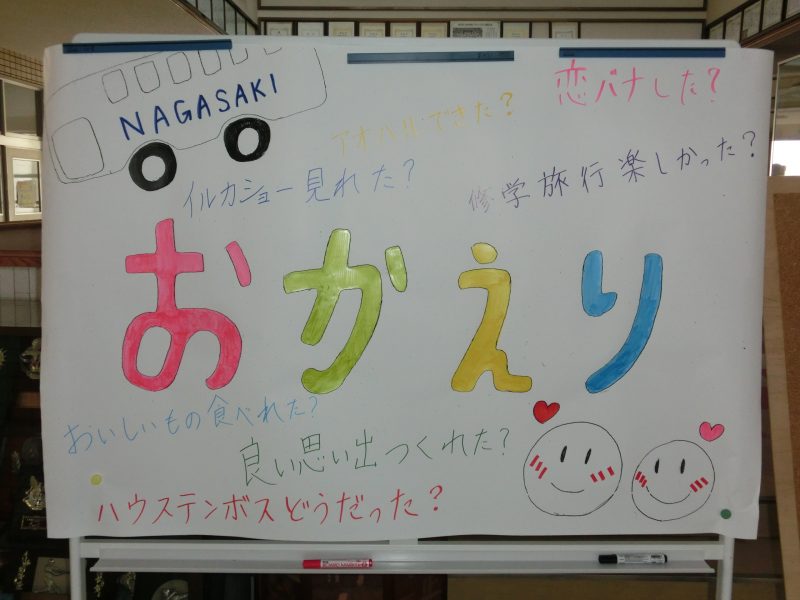 NAGASAKI
恋バナした?
アオハルできた?
イルカショー見れた?
修学旅行楽しかった?
おかえり
おいしいもの食べれた?
良い思い出つくれた?
ハウステンボスどうだった?